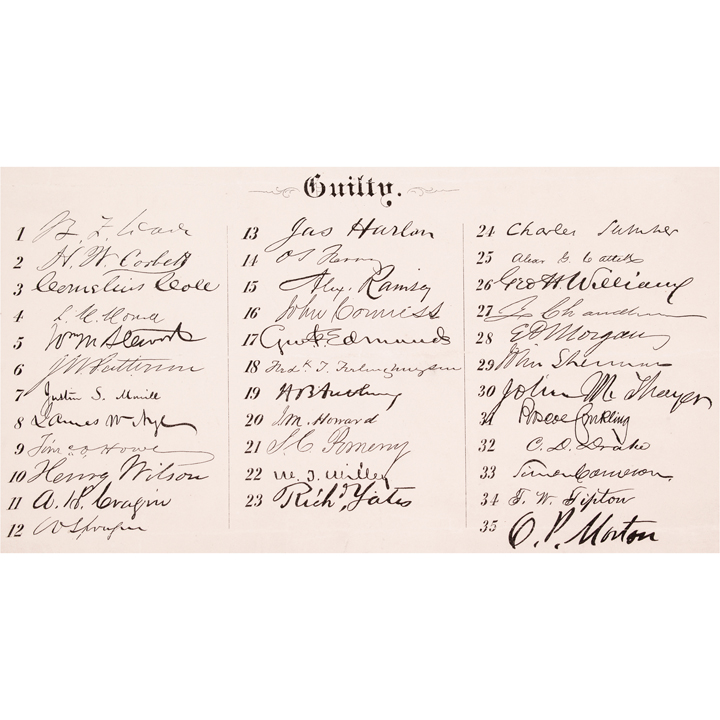 Guilty.
1 B. F. Wade
2 H. W. Corbett
3 Cornelius Cole
4
5 Wm M Stewart
6 J W Patterson
7 Justin S. Morrill
8 James W Nye
9 Timo O Howe
10 Henry Wilson
11 A. H. Cragin
12 W Sprague
13 Jas Harlan
14 O S Ferry
15 Alex. Ramsey
16 John Conness
17 Geo F Edmunds
18 Fredk T. Frelinghuysen
19 H B Anthony
20 J. M. Howard
21 S. C. Pomeroy
22 W. T. Willey
23 Richd Yates
24 Charles Sumner
25 Alex G. Cattell
26 Geo H Williams
27 Z Chandler
28 E D Morgan
29 John Sherman
30 John M. Thayer
31 Roscoe Conkling
32 C. D. Drake
33 Simon Cameron
34 T. W. Tipton
35 O. P. Morton